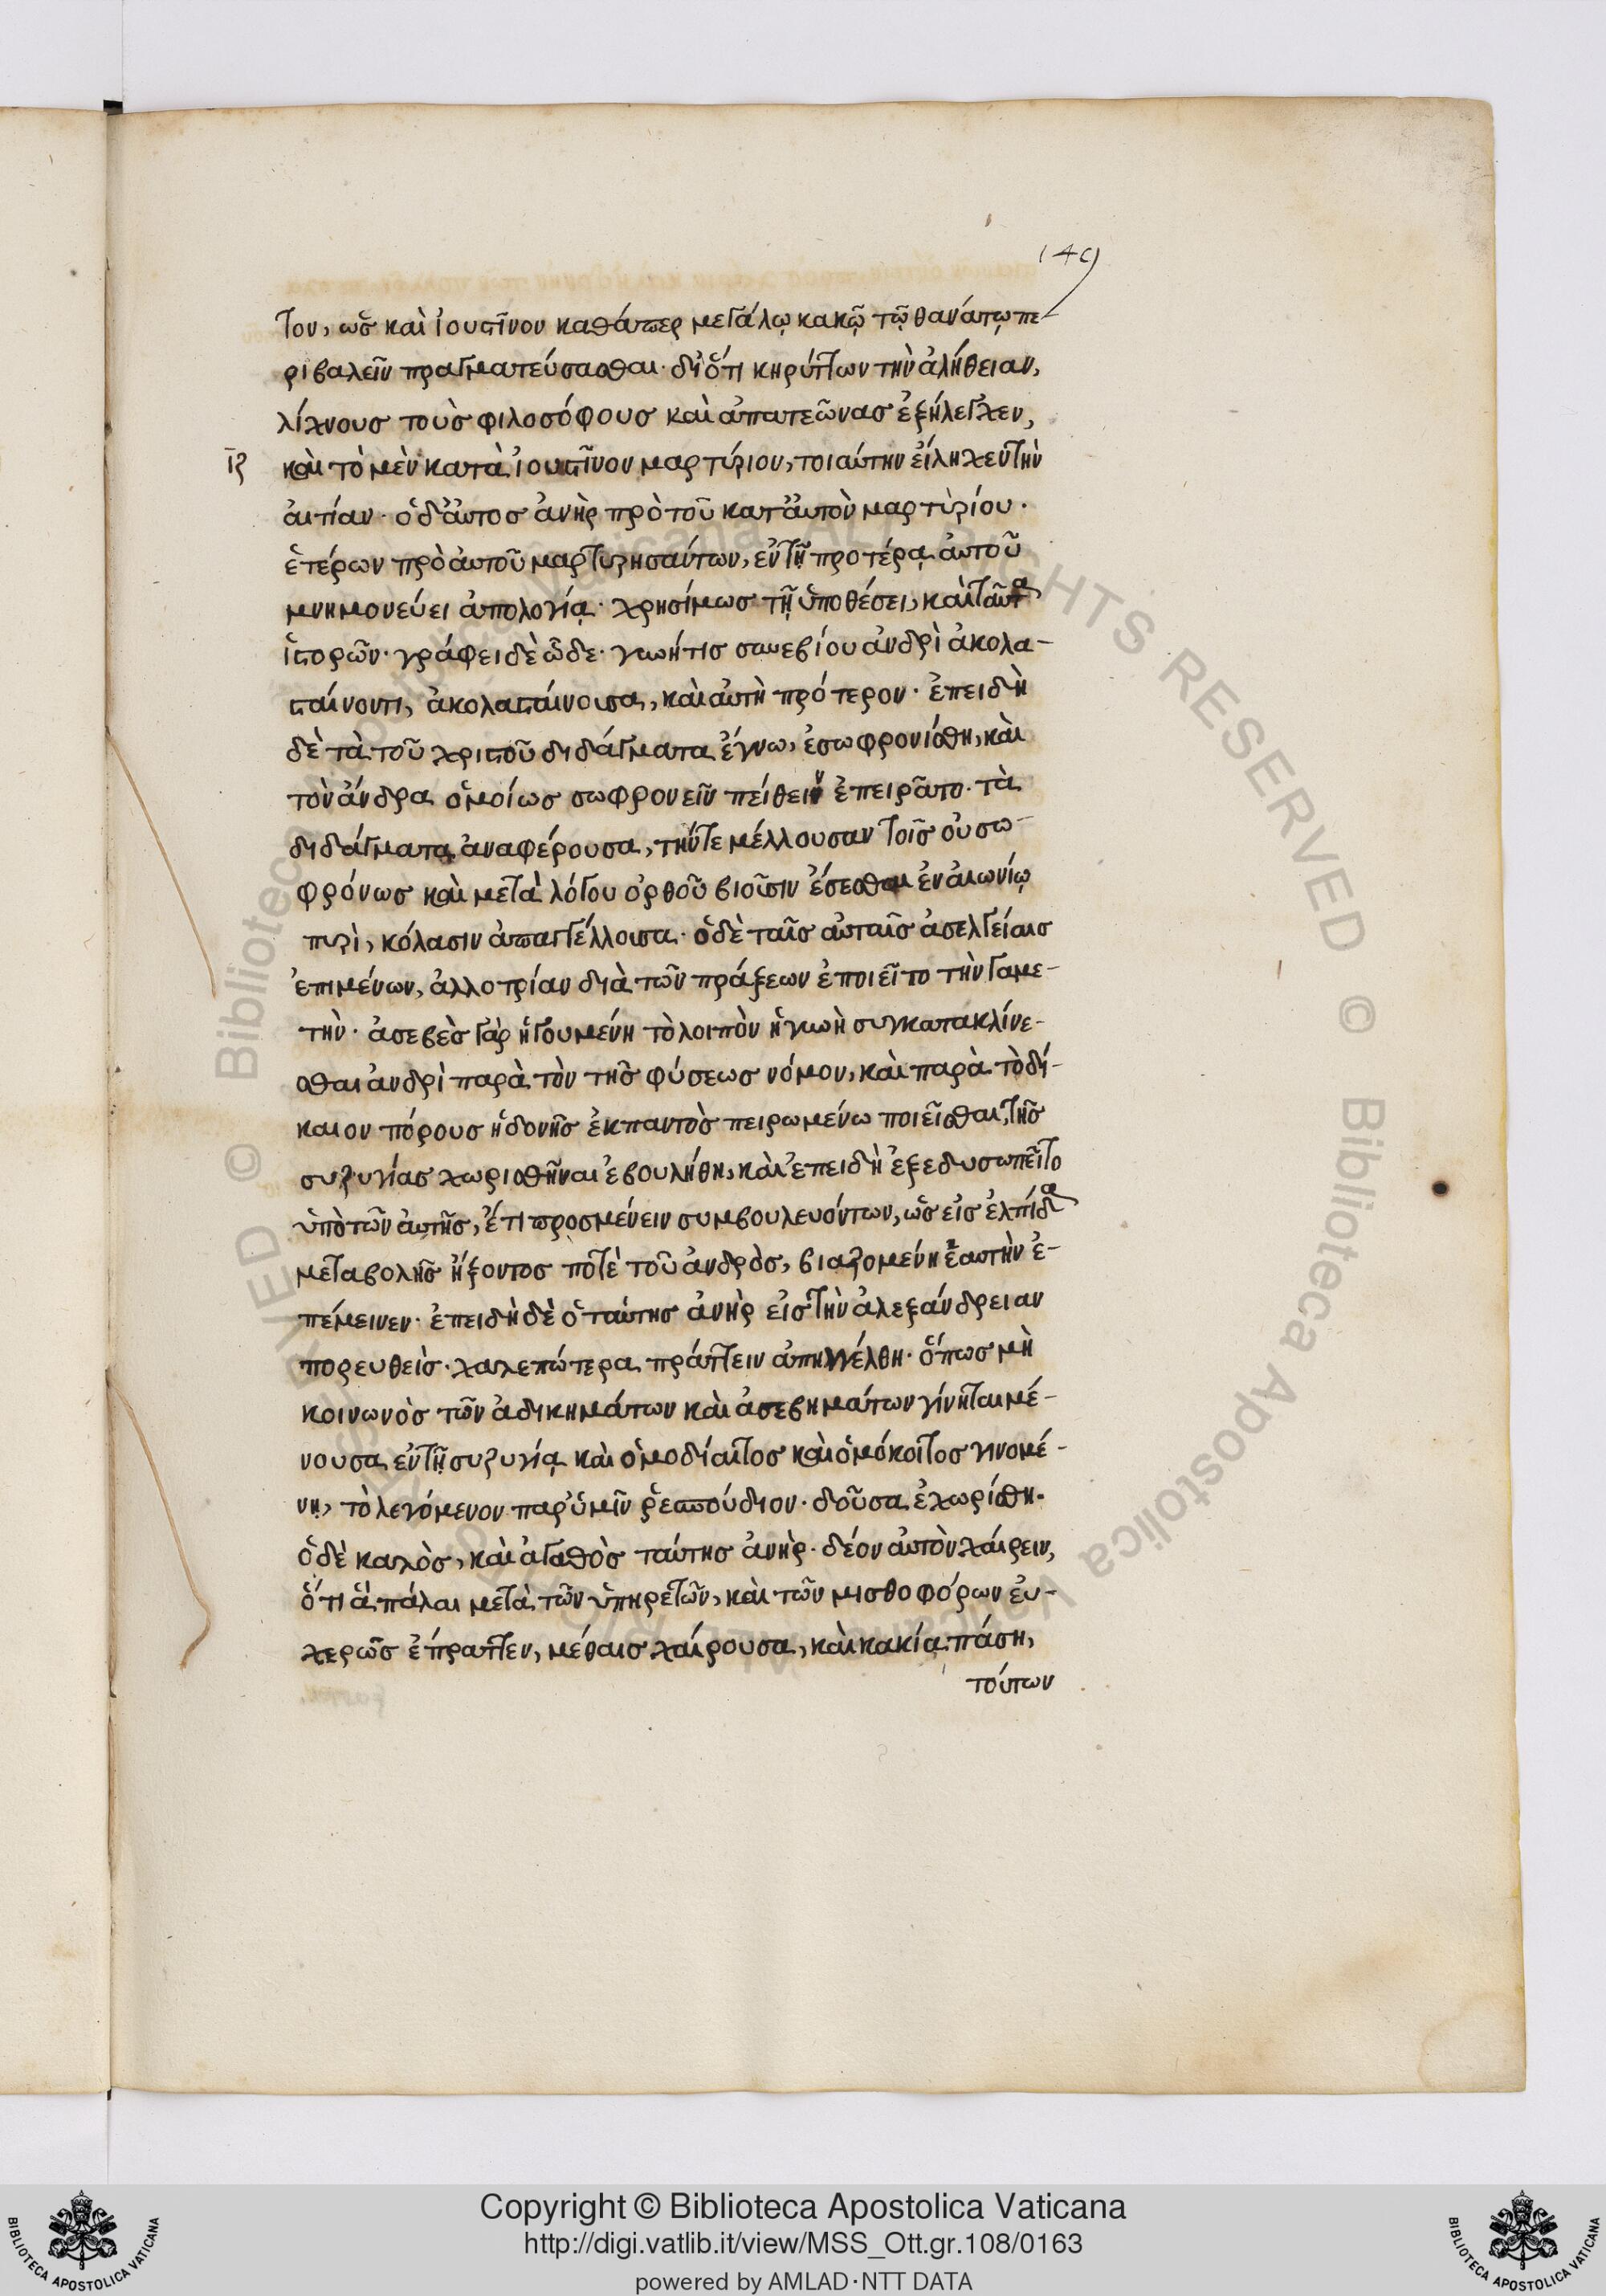 149
τον, ὡς καὶ ἰουστῖνον καθάπερ μεγάλῳ κακῷ τῷ θανάτῳ πε
ριβαλεῖν πραγματεύσασθαι· διότι κηρύττων τὴν ἀλήθειαν,
λίχνους τοὺς φιλοσόφους καὶ ἀπατεῶνας ἐξήλεγχεν,
ιζ καὶ τὸ μὲν κατὰ ἰουστῖνον μαρτύριον, τοιαύτην εἴληχεν τὴν
ἀιτίαν· ὁ δ' ἀυτος ἀνὴρ πρὸ τοῦ κατ' ἀυτὸν μαρτυρίου·
ἑτέρων πρὸ ἀυτοῦ μαρτυρησάντων, ἐν τῇ προτέρᾳ ἀυτοῦ
μνημονεύει ἀπολογίᾳ· χρησίμως τῇ ὑποθέσει, καὶ ταῦτα
ἱστορῶν· γράφει δὲ ὧδε· γυνή τις συνεβίου ἀνδρὶ ἀκολα-
σταίνοντι, ἀκολασταίνουσα, καὶ ἀυτὴ πρότερον· ἐπειδὴ
δὲ τὰ τοῦ χριστοῦ διδάγματα ἔγνω, ἐσωφρονίσθη, καὶ
τὸν ἄνδρα ὁμοίως σωφρονεῖν πείθειν ἐπειρᾶτο· τὰ
διδάγματα ἀναφέρουσα, τήν τε μέλλουσαν τοῖς οὐ σω-
φρόνως καὶ μετὰ λόγου ὀρθοῦ βιοῦσιν ἔσεσθαι ἐν ἀιωνίῳ
πυρὶ, κόλασιν ἀπαγγέλλουσα· ὁ δὲ ταῖς ἀυταῖς ἀσελγείαις
ἐπιμένων, ἀλλοτρίαν διὰ τῶν πράξεων ἐποιεῖτο τὴν γαμε-
τὴν· ἀσεβὲς γὰρ ἡγουμένη τὸ λοιπὸν ἡ γυνὴ συγκατακλίνε-
σθαι ἀνδρὶ παρὰ τὸν τῆς φύσεως νόμον, καὶ παρὰ τὸ δί-
καιον πόρους ἡδονῆς ἐκπαντὸς πειρωμένω ποιεῖσθαι, τῆς
συζυγίας χωρισθῆναι ἐβουλήθη, καὶ ἐπειδὴ ἐξεδυσωπεῖτο
ὑπὸ τῶν ἀυτῆς, ἔτι προσμένειν συμβουλευόντων, ὡς εἰς ἐλπίδα
μεταβολῆς ἥξοντος ποτὲ τοῦ ἀνδρὸς, βιαζομένη ἑαυτὴν ἐ-
πέμεινεν· ἐπειδὴ δὲ ὁ ταύτης ἀνὴρ εἰς τὴν ἀλεξάνδρειαν
πορευθεὶς· χαλεπώτερα πράττειν ἀπηγγέλθη· ὅπως μὴ
κοινωνὸς τῶν ἀδικημάτων καὶ ἀσεβημάτων γίνηται μέ-
νουσα ἐν τῇ συζυγίᾳ καὶ ὁμοδίαιτος καὶ ὁμόκοιτος γινομέ-
νη, τὸ λεγόμενον παρ' ὑμῖν ῥεπούδιον· δοῦσα ἐχωρίσθη·
ὁ δὲ καλὸς, καὶ ἀγαθὸς ταύτης ἀνὴρ· δέον ἀυτὸν χαίρειν,
ὅτι ἃ πάλαι μετὰ τῶν ὑπηρετῶν, καὶ τῶν μισθοφόρων ἐυ-
χερῶς ἔπραττεν, μέθαις χαίρουσα, καὶ κακίᾳ πάση,
τούτων